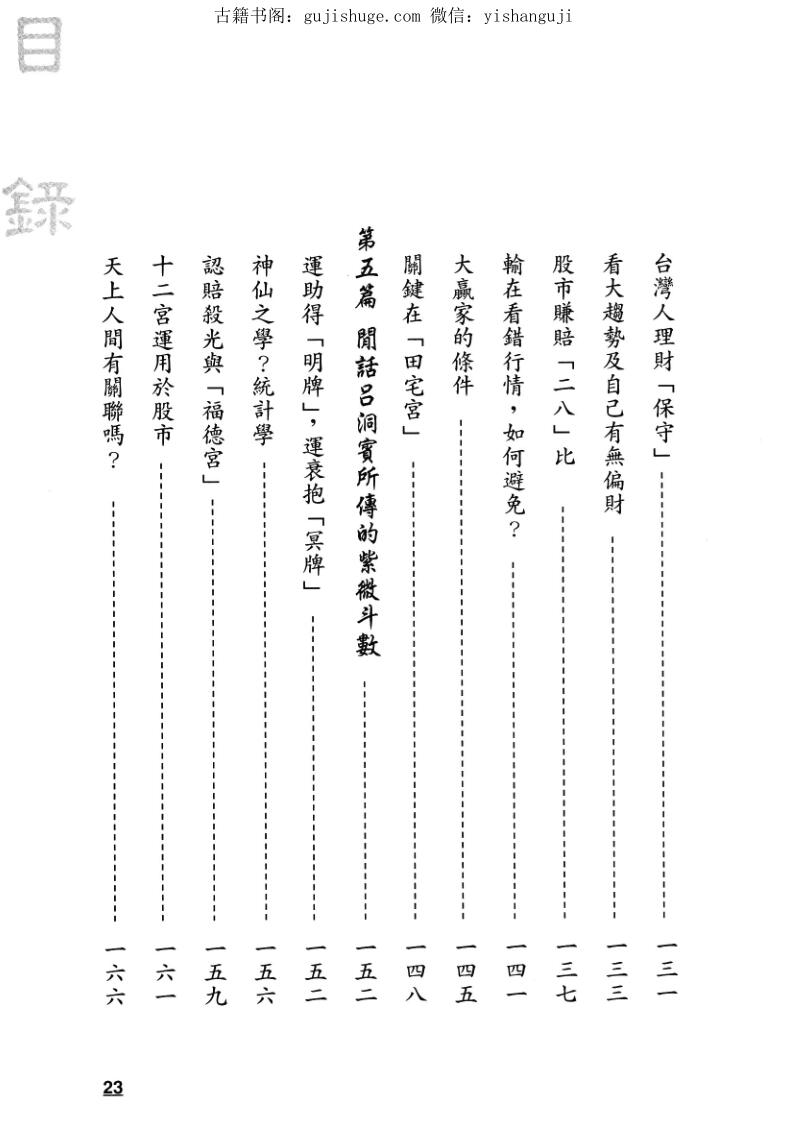 古籍书阁：gujishuge.com 微信：yishanguji
目錄
台灣人理財「保守」 一三一
看大趨勢及自己有無偏財 一三三
股市賺賠「二八」比 一三七
輸在看錯行情，如何避免？ 一四一
大贏家的條件 一四五
關鍵在「田宅宮」 一四八
第五篇 閒話呂洞賓所傳的紫微斗數 一五二
運助得「明牌」，運衰抱「冥牌」 一五二
神仙之學？統計學 一五六
認賠殺光與「福德宮」 一五九
十二宮運用於股市 一六一
天上人間有關聯嗎？ 一六六
23